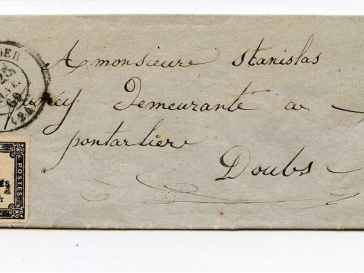 A monsieure stanislas
Demeurante a
pontarliere
Doubs
POSTES